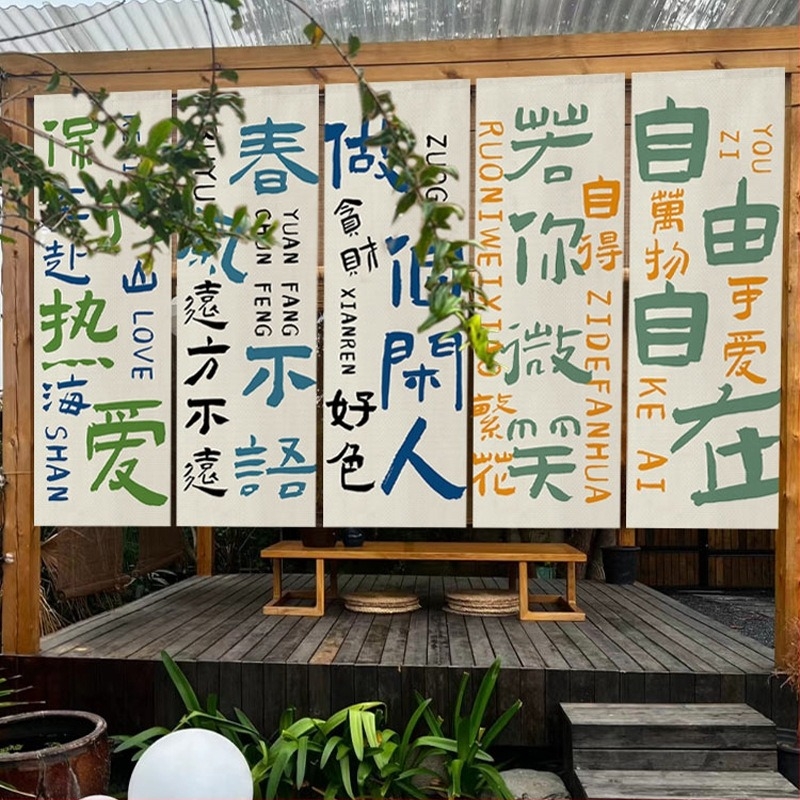 保持
热爱
赴
山
海
LOVE
SHAN
春
不語
CHUN FENG
YUAN FANG
遠方不遠
做個閑人
貪財
XIANREN
好色
若你微笑
RUONIWEIXIAO
自得
ZIDEFANHUA
繁花
自由自在
YOU
ZI
萬物
可爱
KE AI